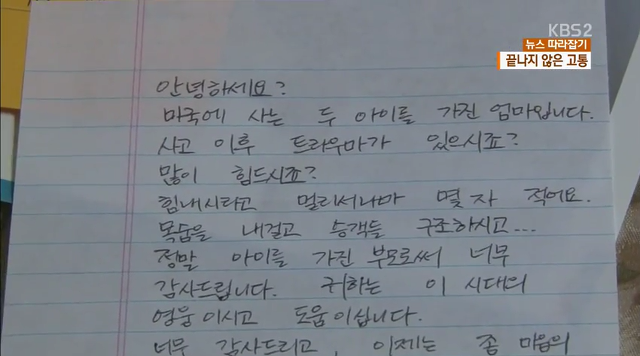 KBS2
뉴스 따라잡기
끝나지 않은 고통
안녕하세요?
미국에 사는 두 아이를 가진 엄마입니다.
사고 이후 트라우마가 있으시죠?
많이 힘드시죠?
힘내시라고 멀리서나마 몇 자 적어요.
목숨을 내걸고 승객들 구조하시고...
정말 아이를 가진 부모로써 너무
감사드립니다. 귀하는 이 시대의
영웅이시고 도움이십니다.
너무 감사드리고, 이제는 좀 마음의